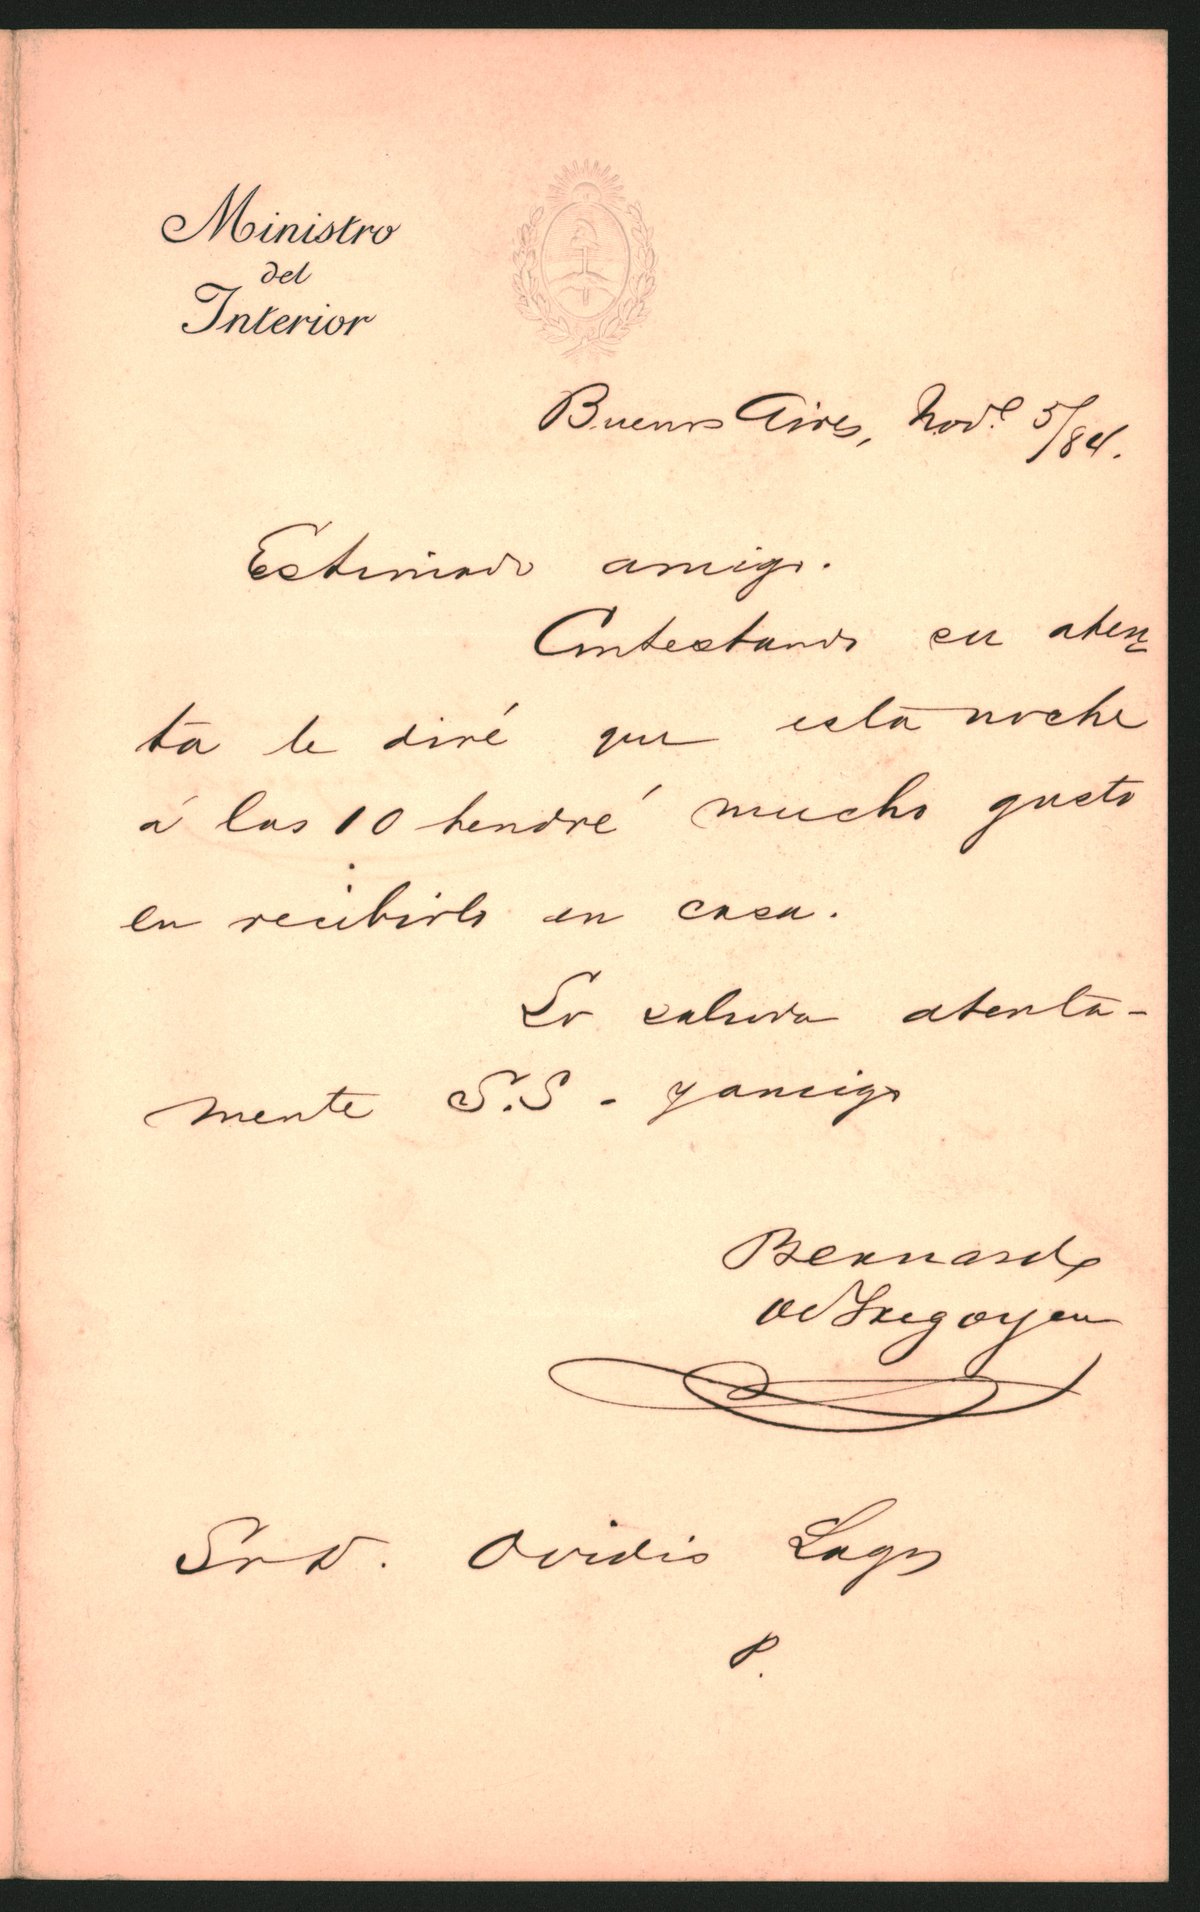 Ministro
del
Interior
Buenos Aires, Nov.e 5/84.
Estimado amigo.
Contestando su aten
ta le diré que esta noche
á las 10 tendré mucho gusto
en recibirlo en casa.
Lo saluda atenta-
mente S.S - y amigo
Bernardo
de Irigoyen
Sr D. Ovidio Lagos
P.